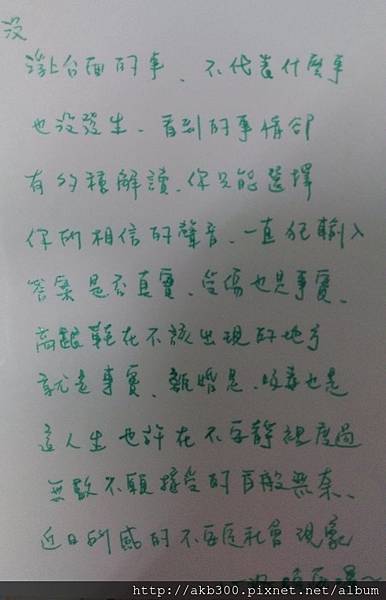 沒
浮上台面的事、不代表什麼事
也沒發生．看到的事情卻
有多種解讀．你只能選擇
你所相信的聲音．一直犯輸入
答案是否真實．受傷也是事實．
高跟鞋在不該出現的地方
就是事實．離婚是．吸毒也是
這人生也許在不平靜裡度過
無數不願接受的百般無奈、
近日所感的不平庭社會現象
http://akb300.pixnet.net/album